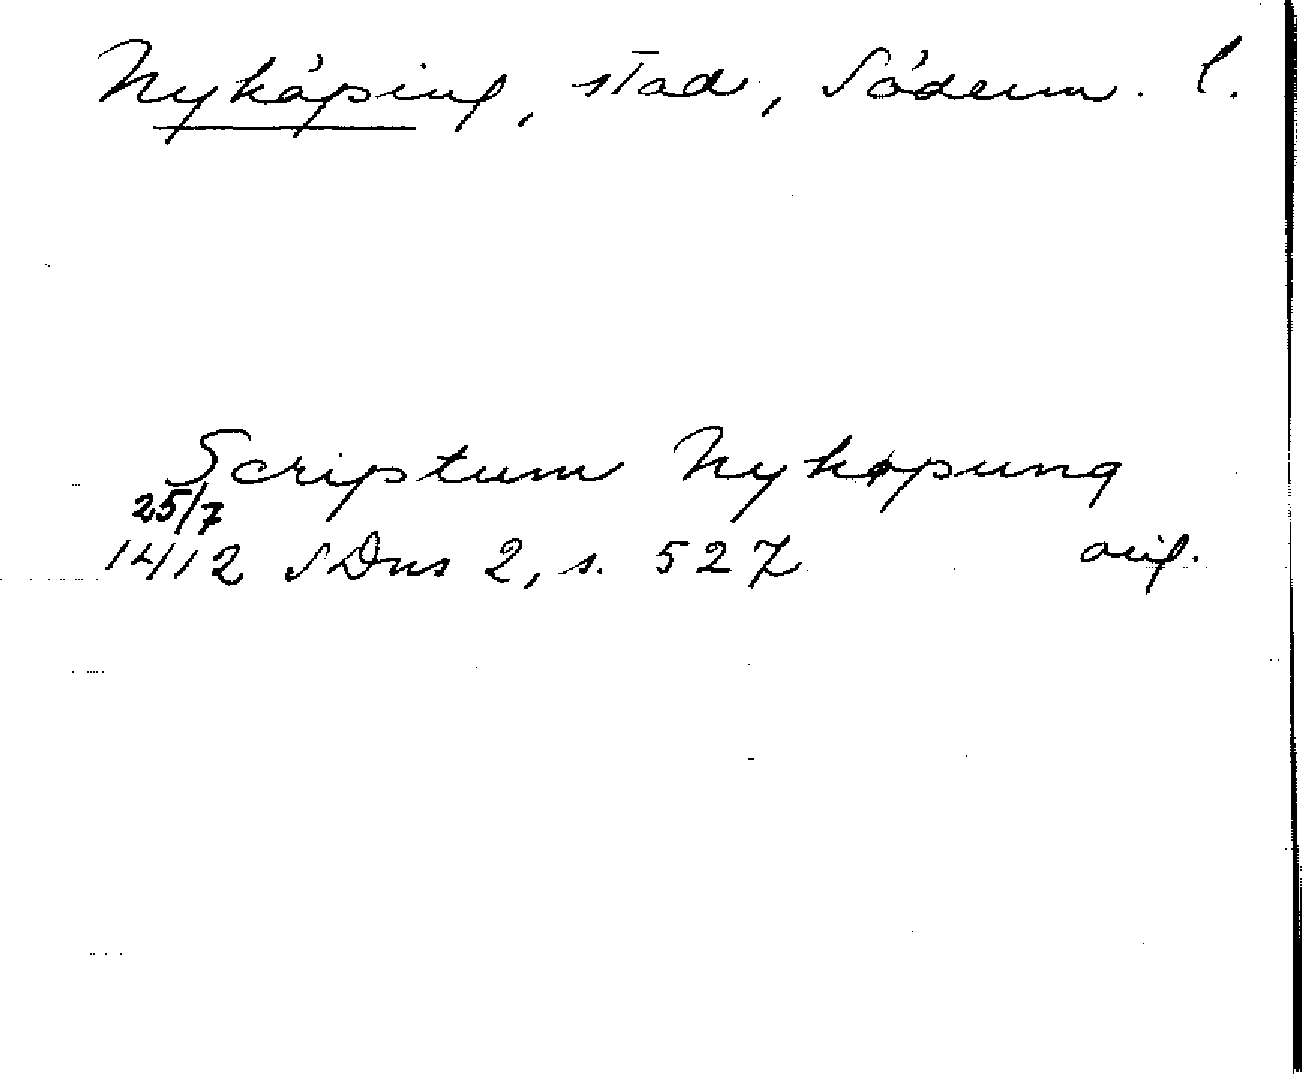 Nyköping, stad, Söderm. l.
Scriptum Nykøpung
25/7
1412 SDns 2, s. 527 orig.